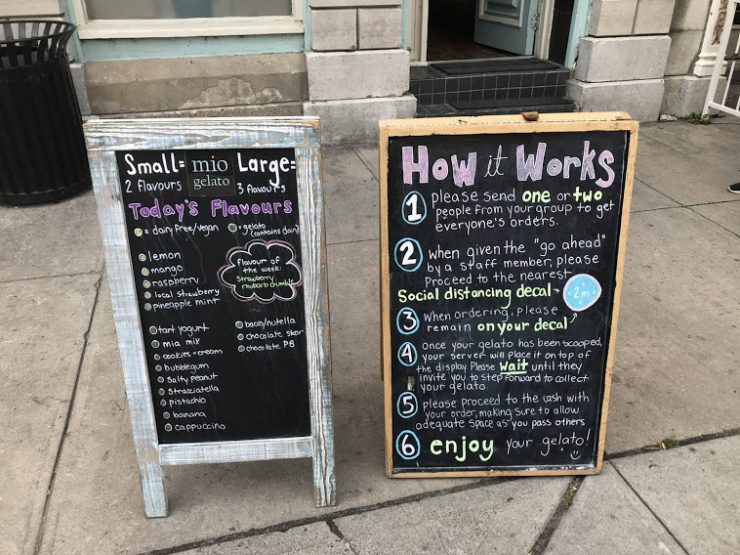 Small= mio gelato Large=
2 flavours 3 flavours
Today's Flavours
= dairy free/vegan = gelato (contains dairy)
lemon
mango
raspberry
local strawberry
pineapple mint
flavour of
the week:
strawberry
rhubarb crumble
tart yogurt
mia mix
cookies + cream
bubblegum
salty peanut
stracciatella
pistachio
banana
cappuccino
bacio/nutella
chocolate skor
chocolate PB
How it Works
1 please send one or two
people from your group to get
everyone's orders.
2 when given the "go ahead"
by a staff member, please
proceed to the nearest
Social distancing decal 2m
3 when ordering, please
remain on your decal
4 once your gelato has been scooped,
your server will place it on top of
the display. Please wait until they
invite you to step forward to collect
your gelato
5 please proceed to the cash with
your order, making sure to allow
adequate space as you pass others
6 enjoy your gelato!